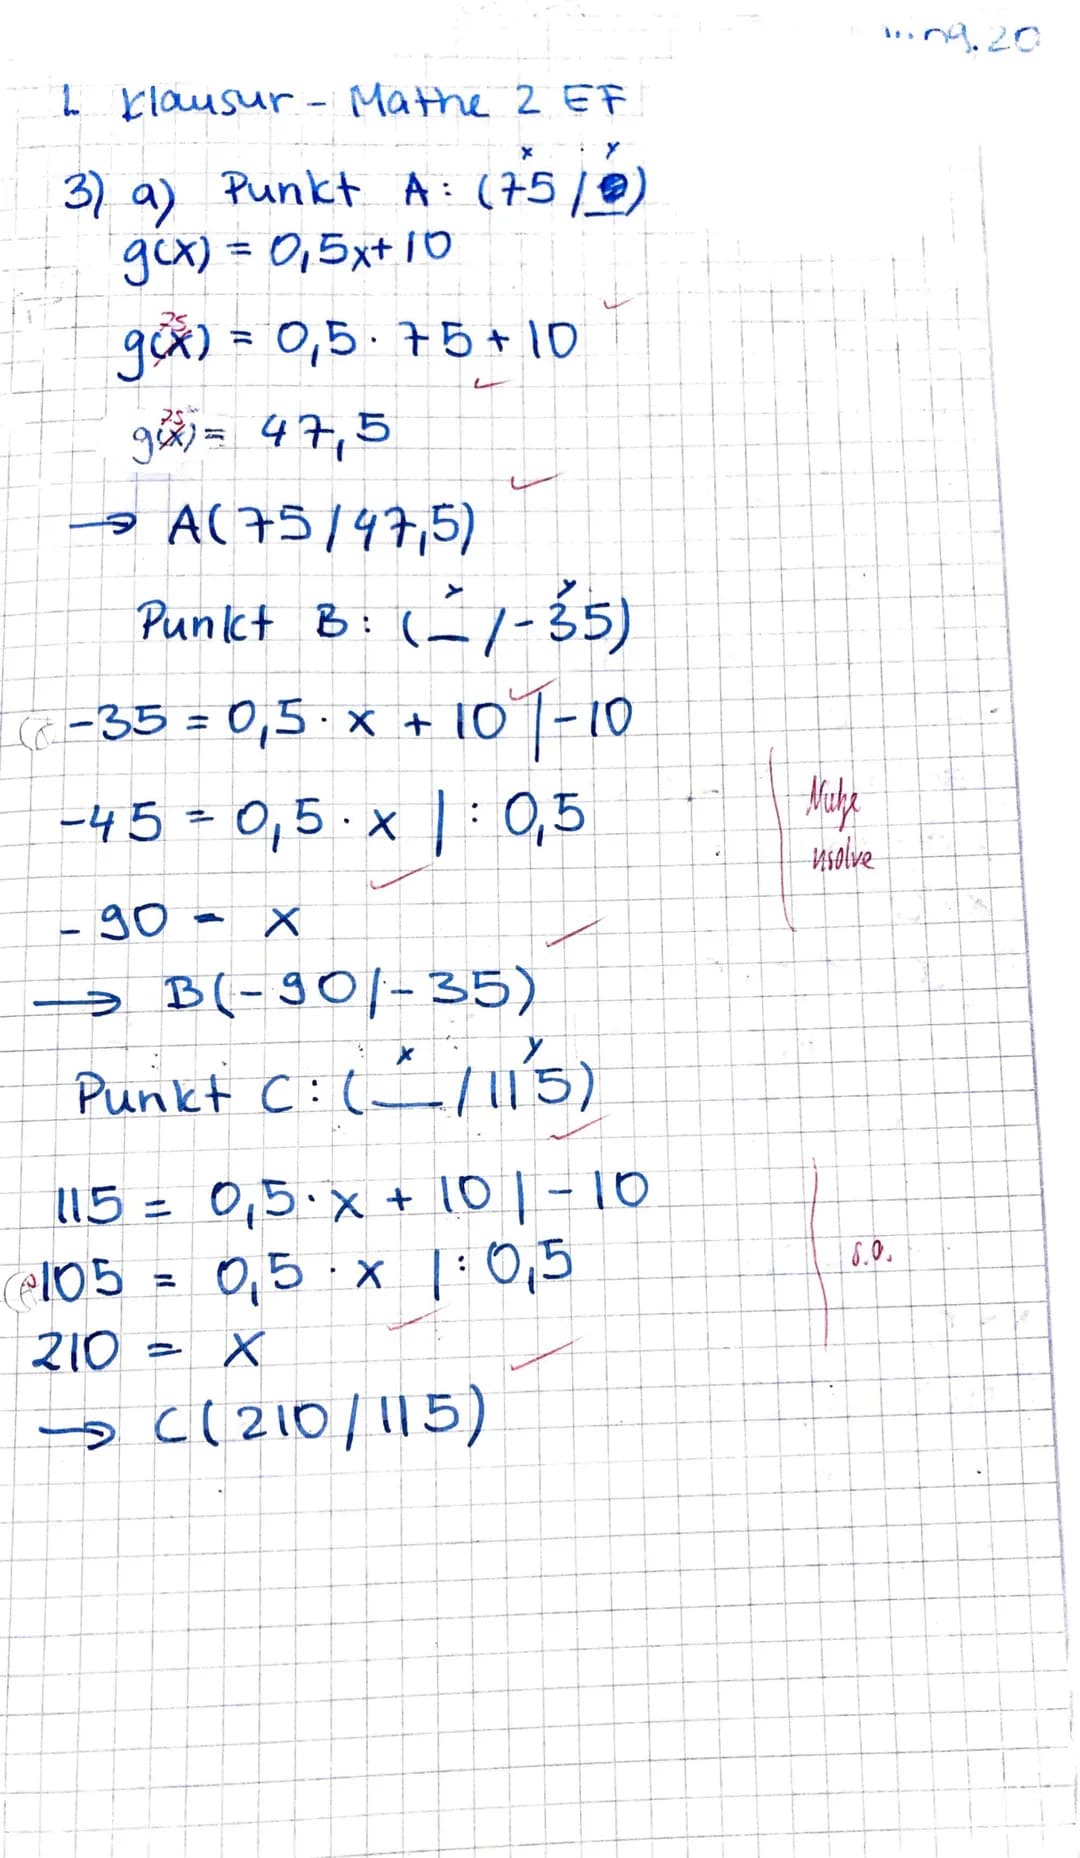 09.20
1. Klausur - Mathe 2 EF
x y
3) a) Punkt A: (75/_)
g(x) = 0,5x+10
75
g(x) = 0,5 · 75 + 10
75
g(x) = 47,5
→ A(75/47,5)
y
Punkt B: (_/-35)
-35 = 0,5 · x + 10 |-10
-45 = 0,5 · x | : 0,5
Nutze
nsolve
-90 = x
→ B(-90/-35)
x y
Punkt C: (_/115)
115 = 0,5 · x + 10 | -10
105 = 0,5 · x | : 0,5
s.o.
210 = x
→ C(210/115)